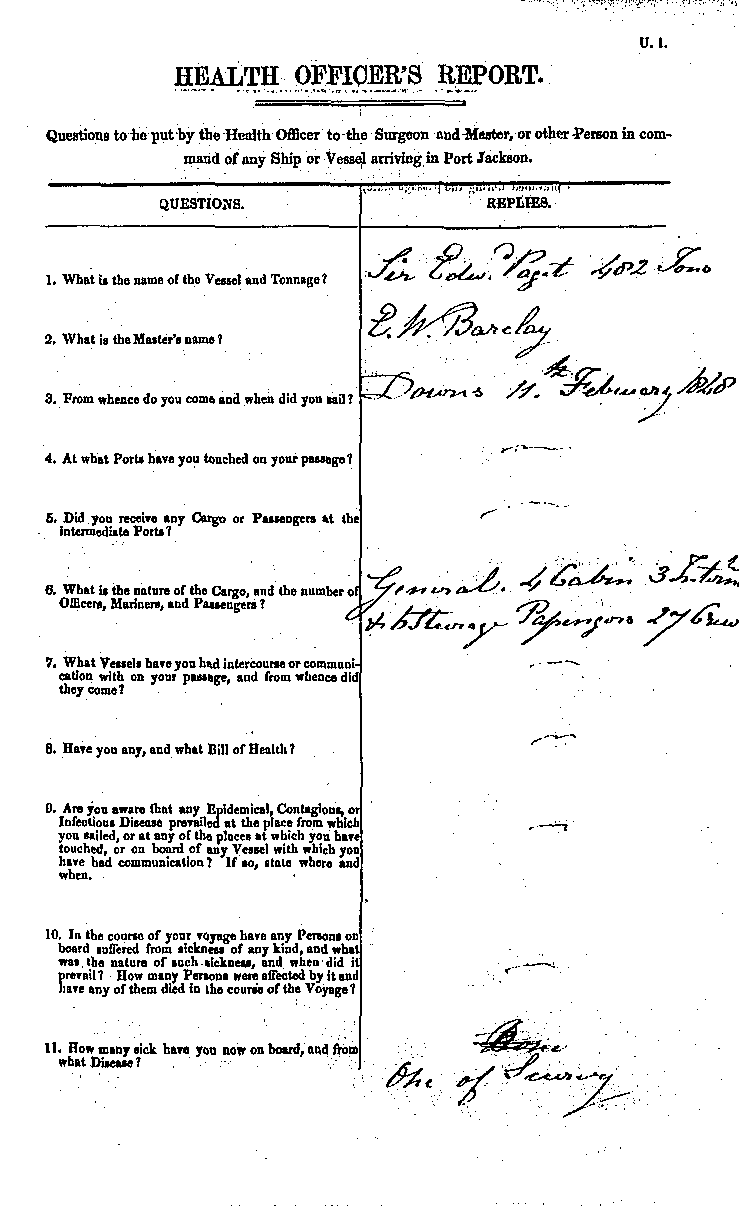 U. 1.
HEALTH OFFICER'S REPORT.
Questions to be put by the Health Officer to the Surgeon and Master, or other Person in com-
mand of any Ship or Vessel arriving in Port Jackson.
QUESTIONS.
REPLIES.
1. What is the name of the Vessel and Tonnage?
Sir Edwd. Paget 482 Tons
2. What is the Master's name?
E. W. Barclay
3. From whence do you come and when did you sail?
Downs 11.th February 1848
4. At what Ports have you touched on your passage?
5. Did you receive any Cargo or Passengers at the
intermediate Ports?
6. What is the nature of the Cargo, and the number of
Officers, Mariners, and Passengers?
General. 4 Cabin 3 Interm
Steerage Passengers 27 Crew
7. What Vessels have you had intercourse or communi-
cation with on your passage, and from whence did
they come?
8. Have you any, and what Bill of Health?
9. Are you aware that any Epidemical, Contagious, or
Infectious Disease prevailed at the place from which
you sailed, or at any of the places at which you have
touched, or on board of any Vessel with which you
have had communication? If so, state where and
when.
10. In the course of your voyage have any Persons on
board suffered from sickness of any kind, and what
was the nature of such sickness, and when did it
prevail? How many Persons were affected by it and
have any of them died in the course of the Voyage?
11. How many sick have you now on board, and from
what Disease?
One of Scurvy